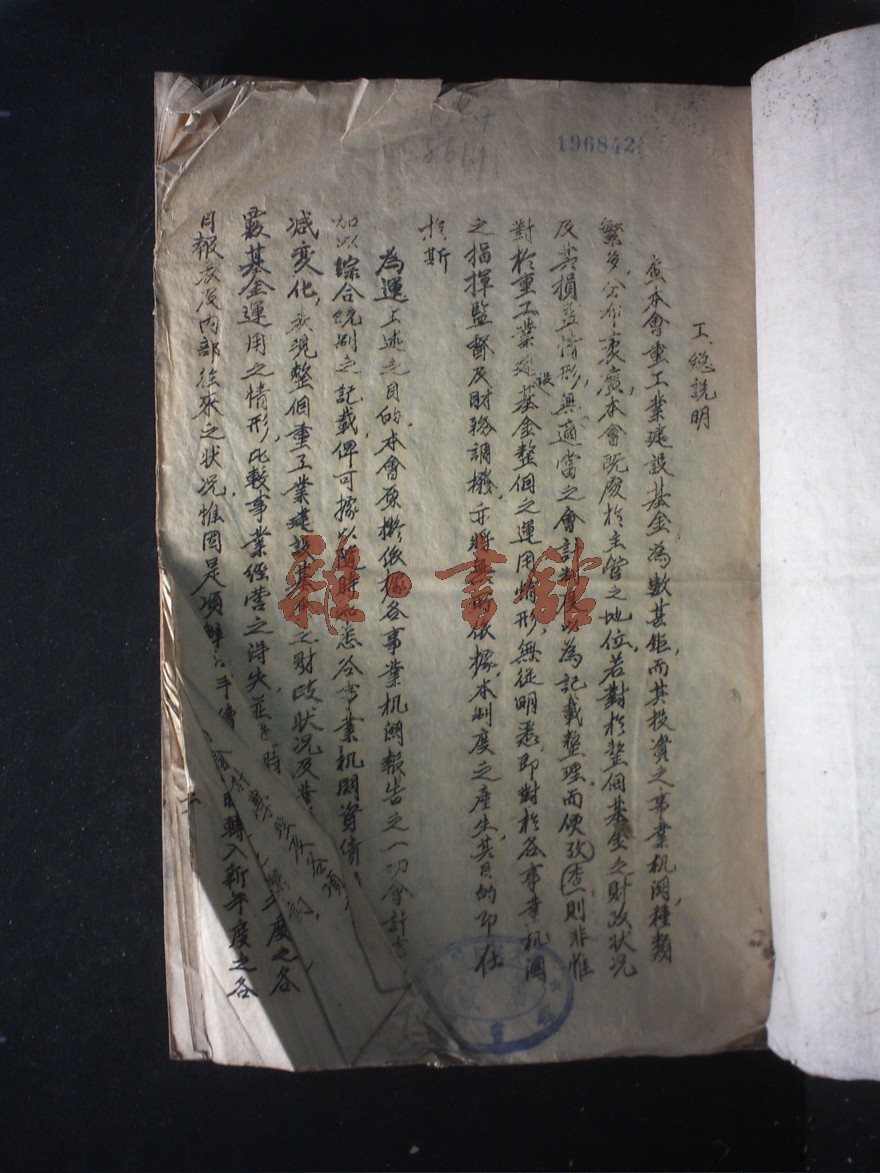 196842
工、總説明
查本會重工業建設基金為數甚鉅，而其投資之事業机関種類
繁多，分布衷廣，本會既處於主管之地位，若對於整個基金之財政狀況
及其損益情形，無適當之會計制度以為記載整理，而便攷查，則非惟
對於重工業建設基金整個之運用情形，無從明悉，即對於各事業机関
之指揮監督及財務調撥，亦將無所依據，本制度之產生，其目的即在
於斯
為運上述之目的，本會原擬依據各事業机関報告之一切會計書
加以綜合統制之記載俾可據以隨時知悉各事業机関資債
減変化，表現整個重工業建設基金之財政狀况及其
覈基金運用之情形，比較事業經营之得失，並
度之各
月報表及内部往來之狀況，惟因是項
轉入新年度之各
雜·書館